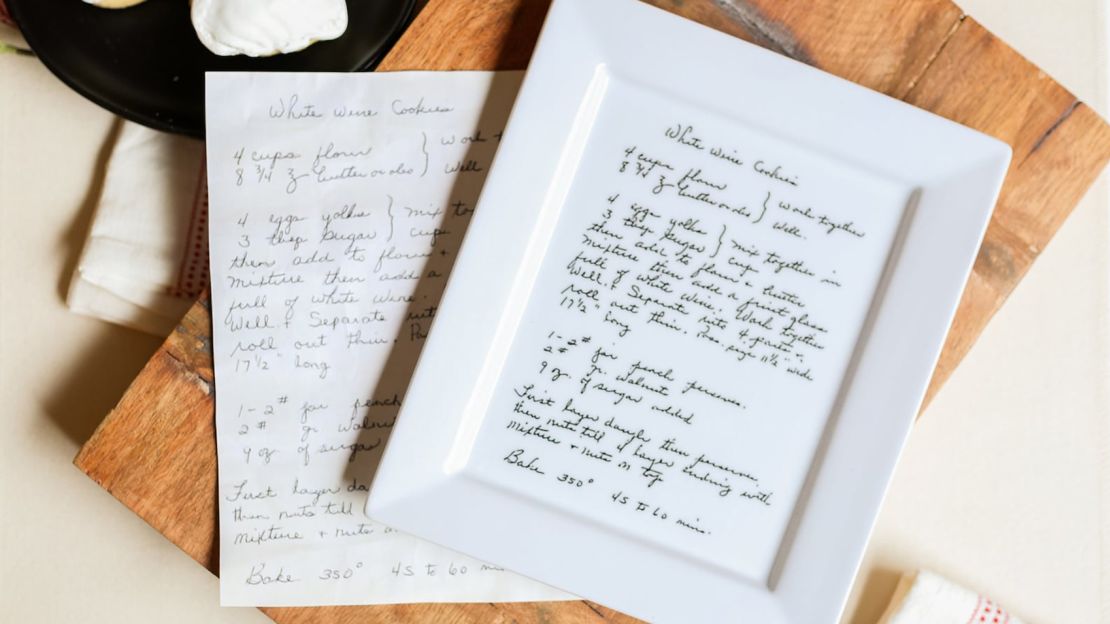 White Wine Cookies
4 cups flour } work t
8 3/4 z butter or oleo } Well
4 eggs yolks } mix to
3 tbsp sugar } cup
then add to flour +
mixture then add a
full of white wine.
Well. + Separate into
roll out thin. Pa
17 1/2" long
1-2# jar peach
2# gr. walnu
4 oz. of sugar
First layer da
then nuts till
mixture + nuts o
Bake 350° 45 to 60 mi
White Wine Cookies
4 cups flour } work together
8 3/4 z butter or oleo } Well.
4 eggs yolks } mix together in
3 tbsp sugar } cup
then add to flour + butter
mixture then add a fruit glass
full of white wine. Work together
Well. + Separate into 4 parts +
roll out thin. Pan size 11 1/2" wide
17 1/2" long
1-2# jar peach perserves.
2# gr. walnuts
9 oz. of sugar added
First layer dough then perserves,
then nuts till 4 layer ending with
mixture + nuts on top
Bake 350° 45 to 60 mins.